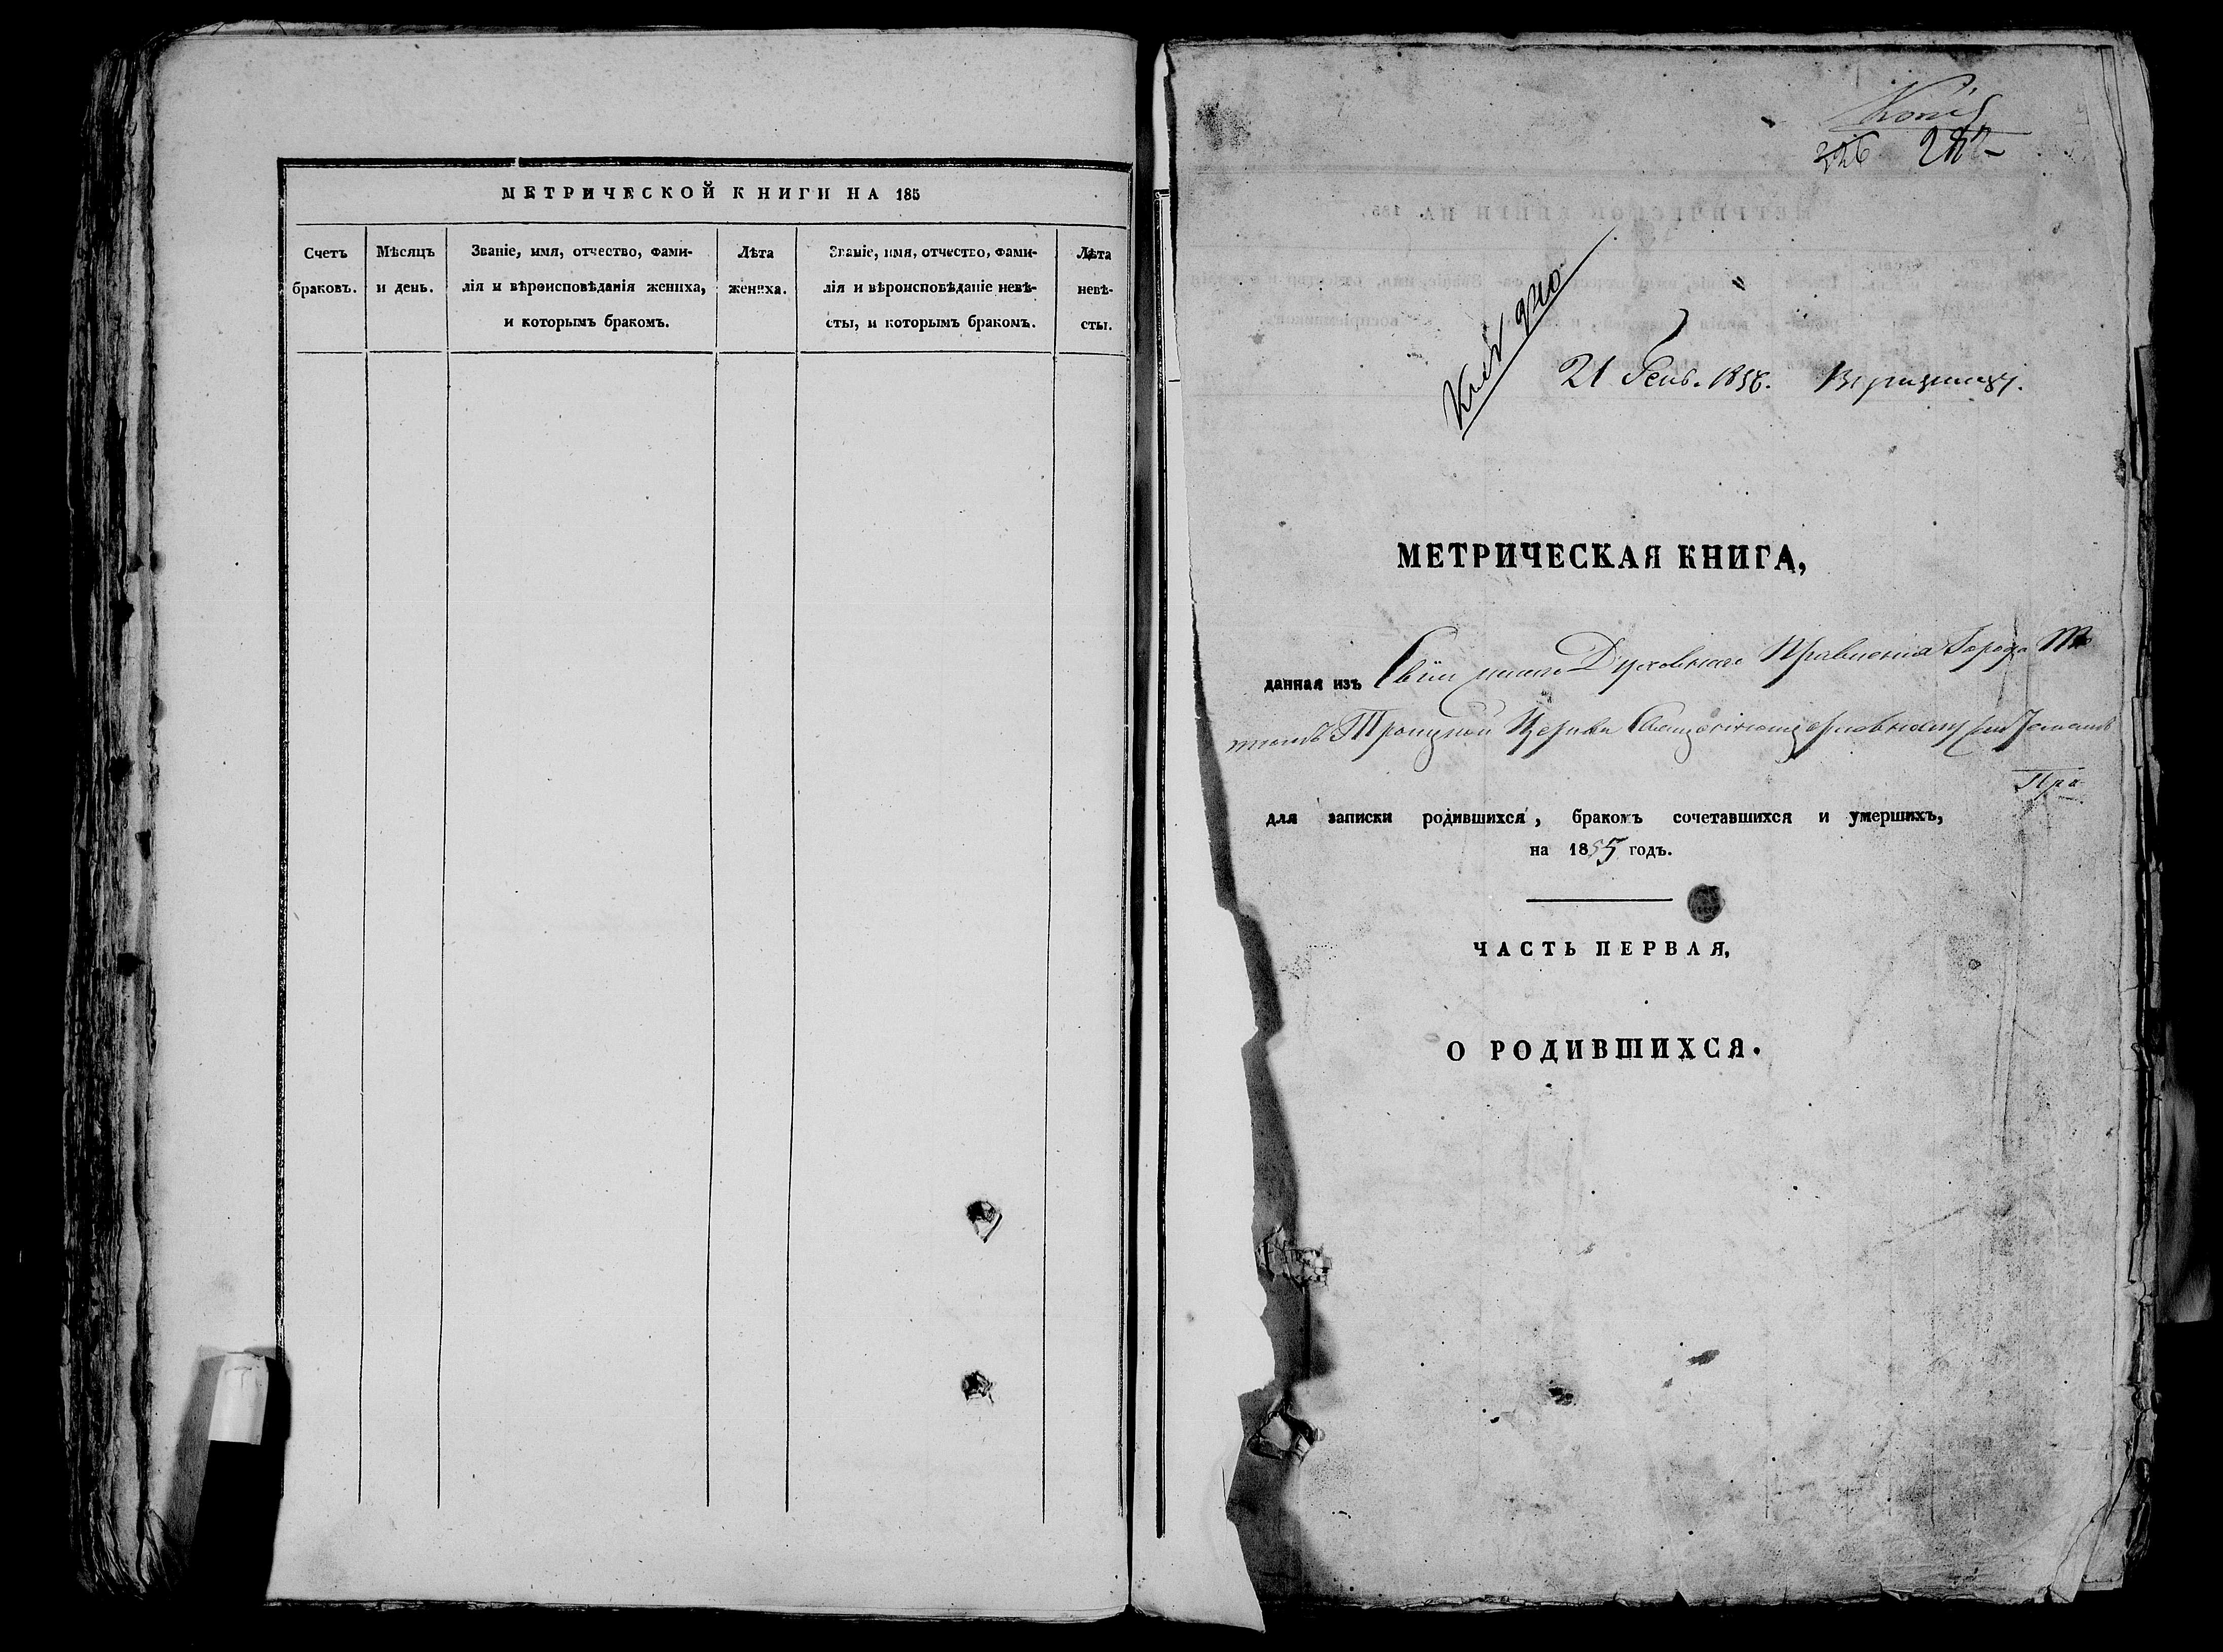 МЕТРИЧЕСКОЙ КНИГИ НА 185
Счетъ браковъ.
Мѣсяцъ и день.
Званіе, имя, отчество, фами-
лія и вѣроисповѣданія жениха,
и которымъ бракомъ.
Лѣта жениха.
Званіе, имя, отчество, фами-
лія и вѣроисповѣданіе невѣ-
сты, и которымъ бракомъ.
Лѣта невѣ-
сты.
226
21 Генв. 1856.
МЕТРИЧЕСКАЯ КНИГА,
данная изъ Духовнаго Правленія Города
Троицкой Церкви
Пра
для записки родившихся, бракомъ сочетавшихся и умершихъ,
на 1855 годъ.
ЧАСТЬ ПЕРВАЯ,
О РОДИВШИХСЯ.